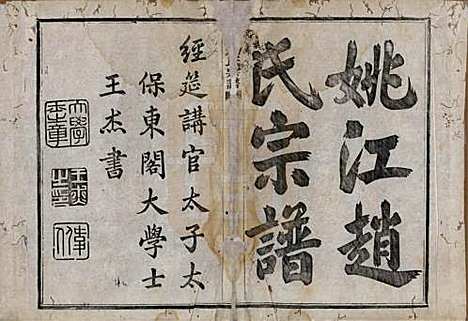 姚江趙
氏宗譜
經筵講官太子太
保東閣大學士
王杰書